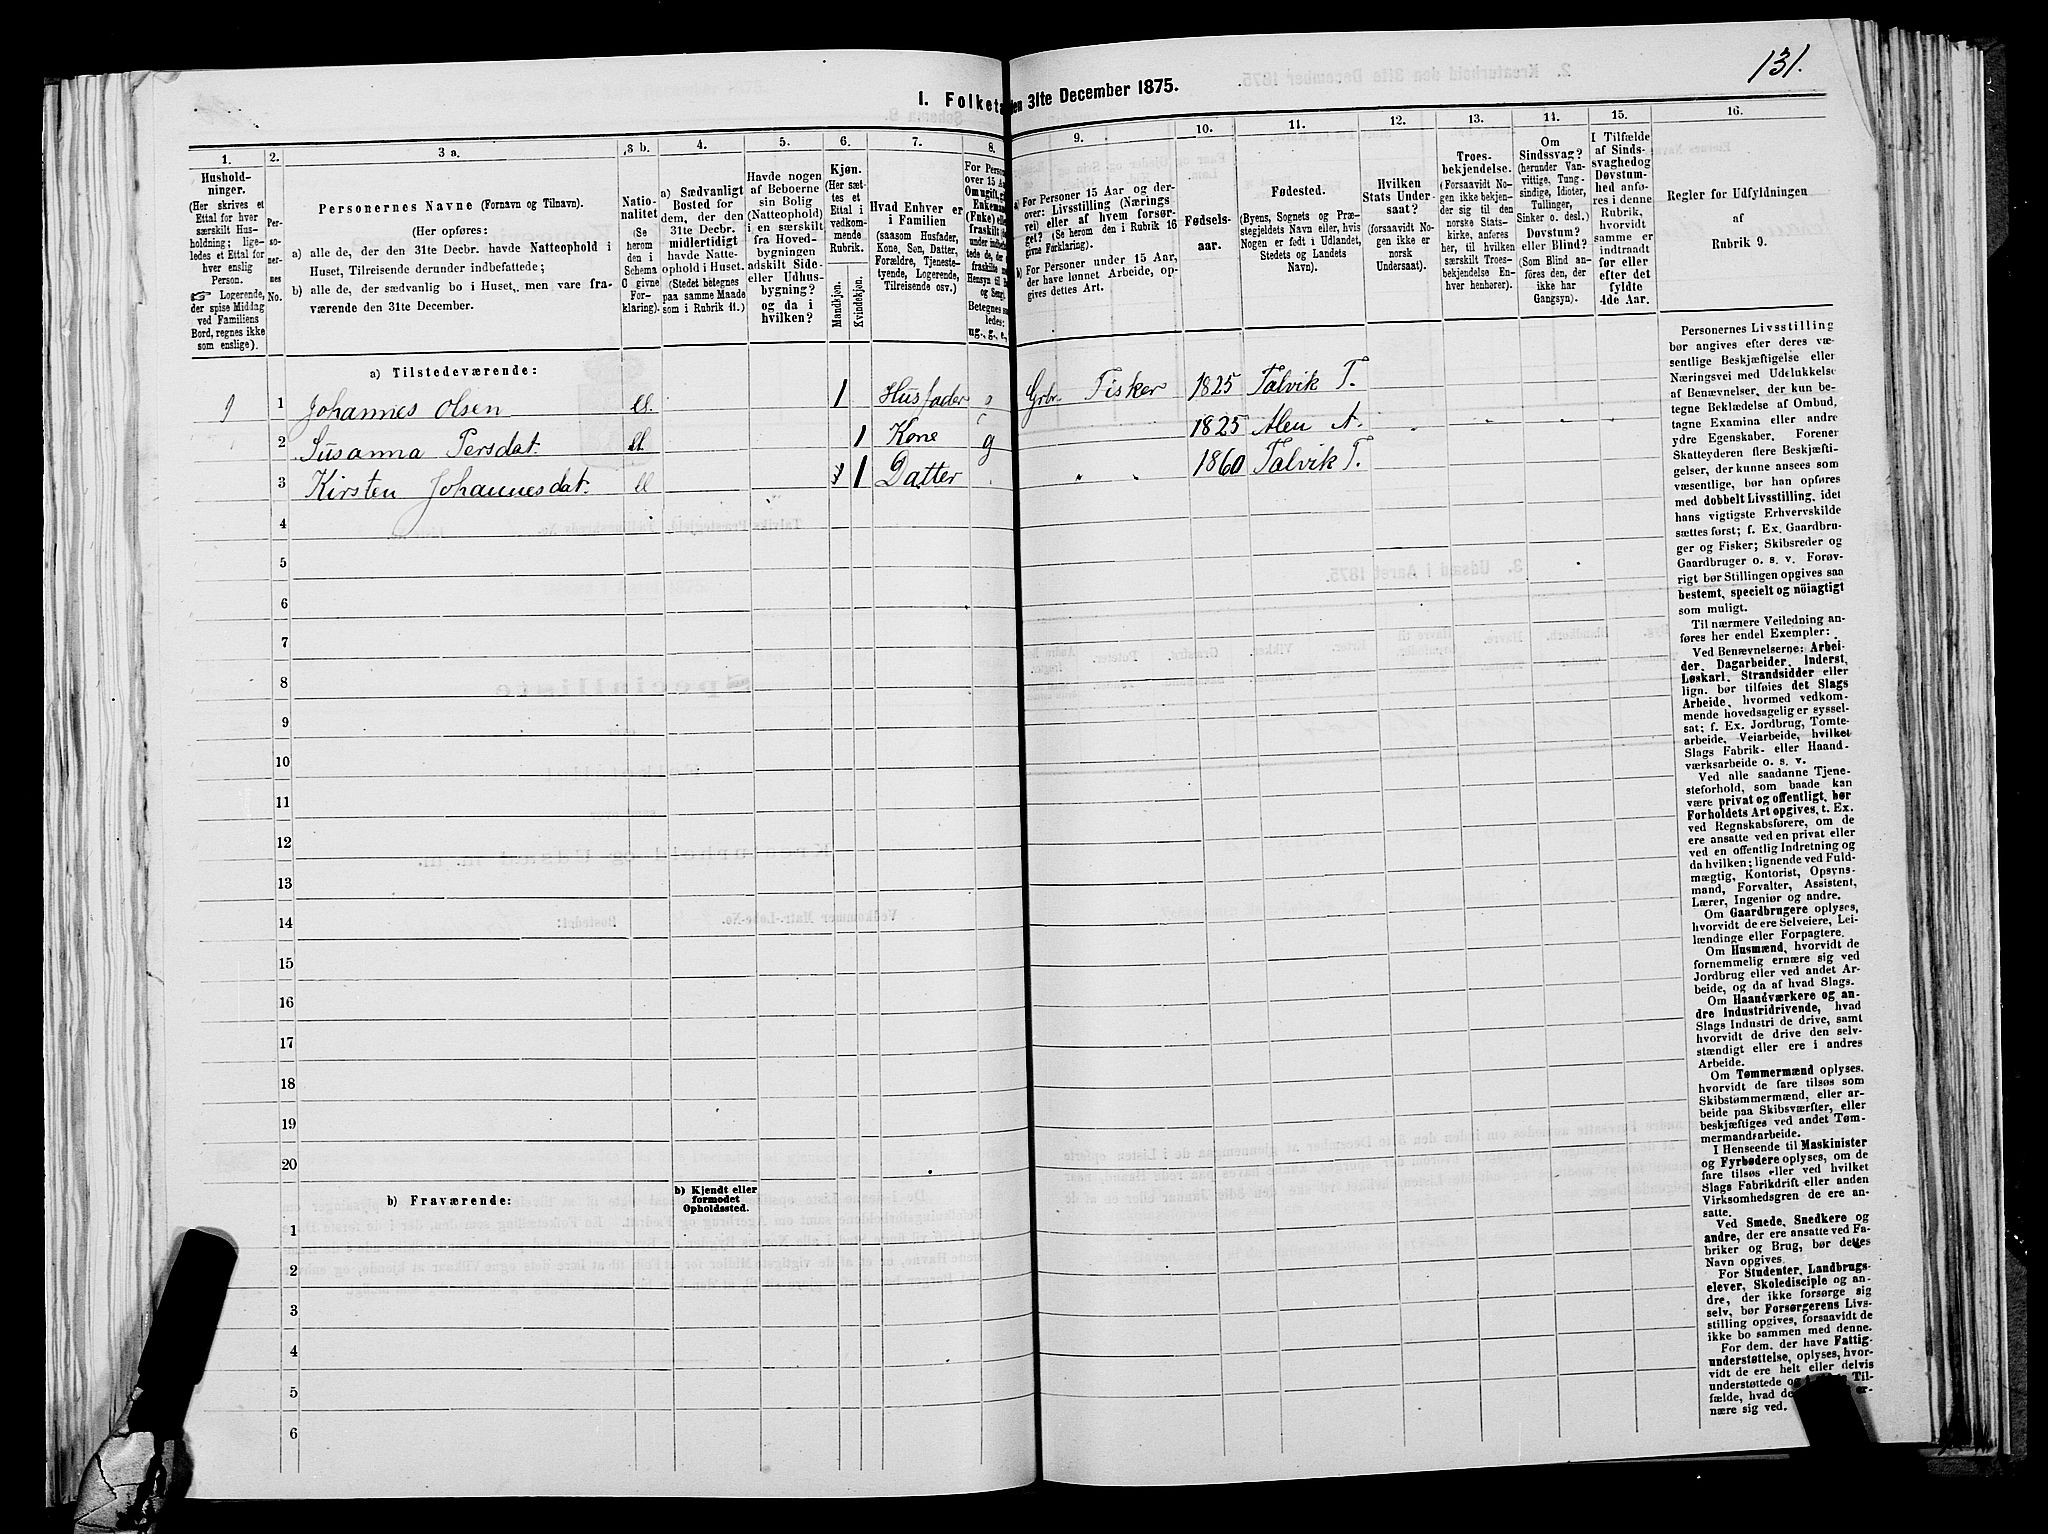 131.
I. Folketa
den 31te December 1875.
1.
2.
3 a.
3 b.
4.
5.
6.
7.
8.
9.
10.
11.
12.
13.
14.
15.
16.
Hushold-
ninger.
(Her skrives et
Ettal for hver
særskilt Hus-
holdning; lige-
ledes et Ettal for
hver enslig
Person.
☞ Logerende,
der spise Middag
ved Familiens
Bord, regnes ikke
som enslige).
Per-
so-
ner-
nes
No.
Personernes Navne (Fornavn og Tilnavn).
(Her opføres:
a) alle de, der den 31te Decbr. havde Natteophold i
Huset, Tilreisende derunder indbefattede;
b) alle de, der sædvanlig bo i Huset, men vare fra-
værende den 31te December.
Natio-
nalitet
(Se
herom
den i
Schema
O givne
For-
klaring).
a) Sædvanligt
Bosted for
dem, der den
31te Decbr.
midlertidigt
havde Natte-
ophold i Huset.
(Stedet betegnes
paa samme Maade
som i Rubrik 11.)
Havde nogen
af Beboerne
sin Bolig
(Natteophold)
i en særskilt
fra Hoved-
bygningen
adskilt Side-
eller Udhus-
bygning?
og da i
hvilken?
Kjøn.
(Her sæt-
tes et
Ettal i
vedkom-
mende
Rubrik.
Mandkjøn.
Kvindekjøn.
Hvad Enhver er
i Familien
(saasom Husfader,
Kone, Søn, Datter,
Forældre, Tjeneste-
tyende, Logerende,
Tilreisende osv.)
For Person
over 15 Aa
Om ugift, g
Enkeman
(Enke) elle
fraskilt
under indbe
tede de, de
fraskilte
Hensyn til B
og Seng.
Betegnes sa
ledes:
ug., g., e.,
a) For Personer 15 Aar og der-
over: Livsstilling (Nærings
vei) eller af hvem forsør-
get? (Se herom den i Rubrik 16
givne Forklaring).
b) For Personer under 15 Aar,
der have lønnet Arbeide, op-
gives dettes Art.
Fødsels-
aar.
Fødested.
(Byens, Sognets og Præ-
stegjeldets Navn eller, hvis
Nogen er født i Udlandet,
Stedets og Landets
Navn).
Hvilken
Stats Under-
saat?
(forsaavidt No-
gen ikke er
norsk
Undersaat).
Troes-
bekjendelse.
(Forsaavidt No-
gen ikke bekjen-
der sig til den
norske Stats-
kirke, anføres
her, til hvilken
særskilt Troes-
bekjendelse En-
hver henhører).
Om
Sindssvag?
(herunder Van-
vittige, Tung-
sindige, Idioter,
Tullinger,
Sinker o. desl.)
Døvstum?
eller Blind?
(Som Blind an-
føres den, der
ikke har
Gangsyn).
I Tilfælde
af Sinds-
svaghedog
Døvstum-
hed anfø-
res i denne
Rubrik,
hvorvidt
samme er
indtraadt
før eller
efter det
fyldte
4de Aar.
Regler for Udfyldningen
af
Rubrik 9.
a) Tilstedeværende:
1 Johannes Olsen 1 Husfader Grbr. Fisker 1825 Talvik T.
2 Susanna Persdat. 1 Kone g 1825 Alen A.
3 Kirsten Johannesdat. 1 Datter " " 1860 Talvik T.
4
5
6
7
8
9
10
11
12
13
14
15
16
17
18
19
20
b) Fraværende:
b) Kjendt eller
formodet
Opholdssted.
1
2
3
4
5
6
Personernes Livsstilling
bør angives efter deres væ-
sentlige Beskjæftigelse eller
Næringsvei med Udelukkelse
af Benævnelser, der kun be-
tegne Beklædelse af Ombud,
tagne Examina eller andre
ydre Egenskaber. Forener
Skatteyderen flere Beskjæfti-
gelser, der kunne ansees som
væsentlige, bør han opføres
med dobbelt Livsstilling, idet
hans vigtigste Erhvervskilde
sættes først; f. Ex. Gaardbru-
ger og Fisker; Skibsreder og
Gaardbruger o. s. v. Forøv-
rigt bør Stillingen opgives saa
bestemt, specielt og nöiagtigt
som muligt.
Til nærmere Veiledning an-
føres her endel Exempler:
Ved Benævnelserne: Arbei-
der, Dagarbeider, Inderst,
Løskarl, Strandsidder eller
lign. bør tilføies det Slags
Arbeide, hvormed vedkom-
mende hovedsagelig er syssel-
sat; f. Ex. Jordbrug, Tomte-
arbeide, Veiarbeide, hvilket
Slags Fabrik- eller Haand-
værksarbeide o. s. v.
Ved alle saadanne Tjene-
steforhold, som baade kan
være privat og offentligt, bør
Forholdets Art opgives, t. Ex.
ved Regnskabsførere, om de
ere ansatte ved en privat eller
ved en offentlig Indretning og
da hvilken; lignende ved Fuld-
mægtig, Kontorist, Opsyns-
mand, Forvalter, Assistent,
Lærer, Ingeniør og andre.
Om Gaardbrugere oplyses,
hvorvidt de ere Selveiere, Lei-
lændinge eller Forpagtere.
Om Husmænd, hvorvidt de
fornemmelig ernære sig ved
Jordbrug eller ved andet Ar-
beide, og da af hvad Slags.
Om Haandværkere og an-
dre Industridrivende, hvad
Slags Industri de drive, samt
hvorvidt de drive den selv-
stændigt eller ere i andres
Arbeide.
Om Tømmermænd oplyses,
hvorvidt de fare tilsøs som
Skibstømmermænd, eller ar-
beide paa Skibsværfter, eller
beskjæftiges ved andet Tøm-
mermandsarbeide.
I Henseende til Maskinister
og Fyrbødere oplyses, om de
fare tilsøs eller ved hvilket
Slags Fabrikdrift eller anden
Virksomhedsgren de ere an-
satte.
Ved Smede, Snedkere og
andre, der ere ansatte ved Fa-
briker og Brug, bør dettes
Navn opgives.
For Studenter, Landbrugs-
elever, Skoledisciple og an-
dre, der ikke forsørge sig
selv, bør Forsørgerens Livs-
stilling opgives, forsaavidt de
ikke bo sammen med denne.
For dem, der have Fattig-
understøttelse, oplyses, hvor-
vidt de ere helt eller delvis
understøttede og Til-
fælde, hvad de er-
nære sig ved.